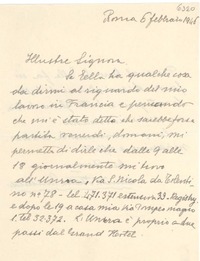 6320
Roma 6 febbraio 1946
Illustre Signora
Se Ella ha qualche cosa
da dirmi al riguardo del mio
lavoro in Francia e pensando
che mi è stato detto che sarebbe
partita venerdì, domani, mi
permetto di dirle che dalle 9 alle
18 giornalmente mi trovo
all'Unrra, Via S. Nicola da Tolentino
nº 78 - tel. 471.371 estension 33
e dopo le 19 a casa mia via
1. tel 32372. L'Unrra è proprio a due
passi dal Grand Hotel.